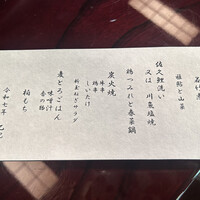 岩魚と山菜
佐久鯉洗い
又は 川魚塩焼
鶏つみれと春菜鍋
炭火焼
牛串
鶏串
しいたけ
新玉ねぎサラダ
麦とろごはん
味噌汁
香の物
柏もち
令和七年